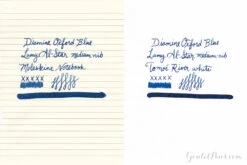 Diamine Oxford Blue
Lamy Al-Star medium nib
Moleskine Notebook
xxxxx
Diamine Oxford Blue
Lamy Al-Star medium nib
Tomoe River white
xxxxx
GouletPens.com